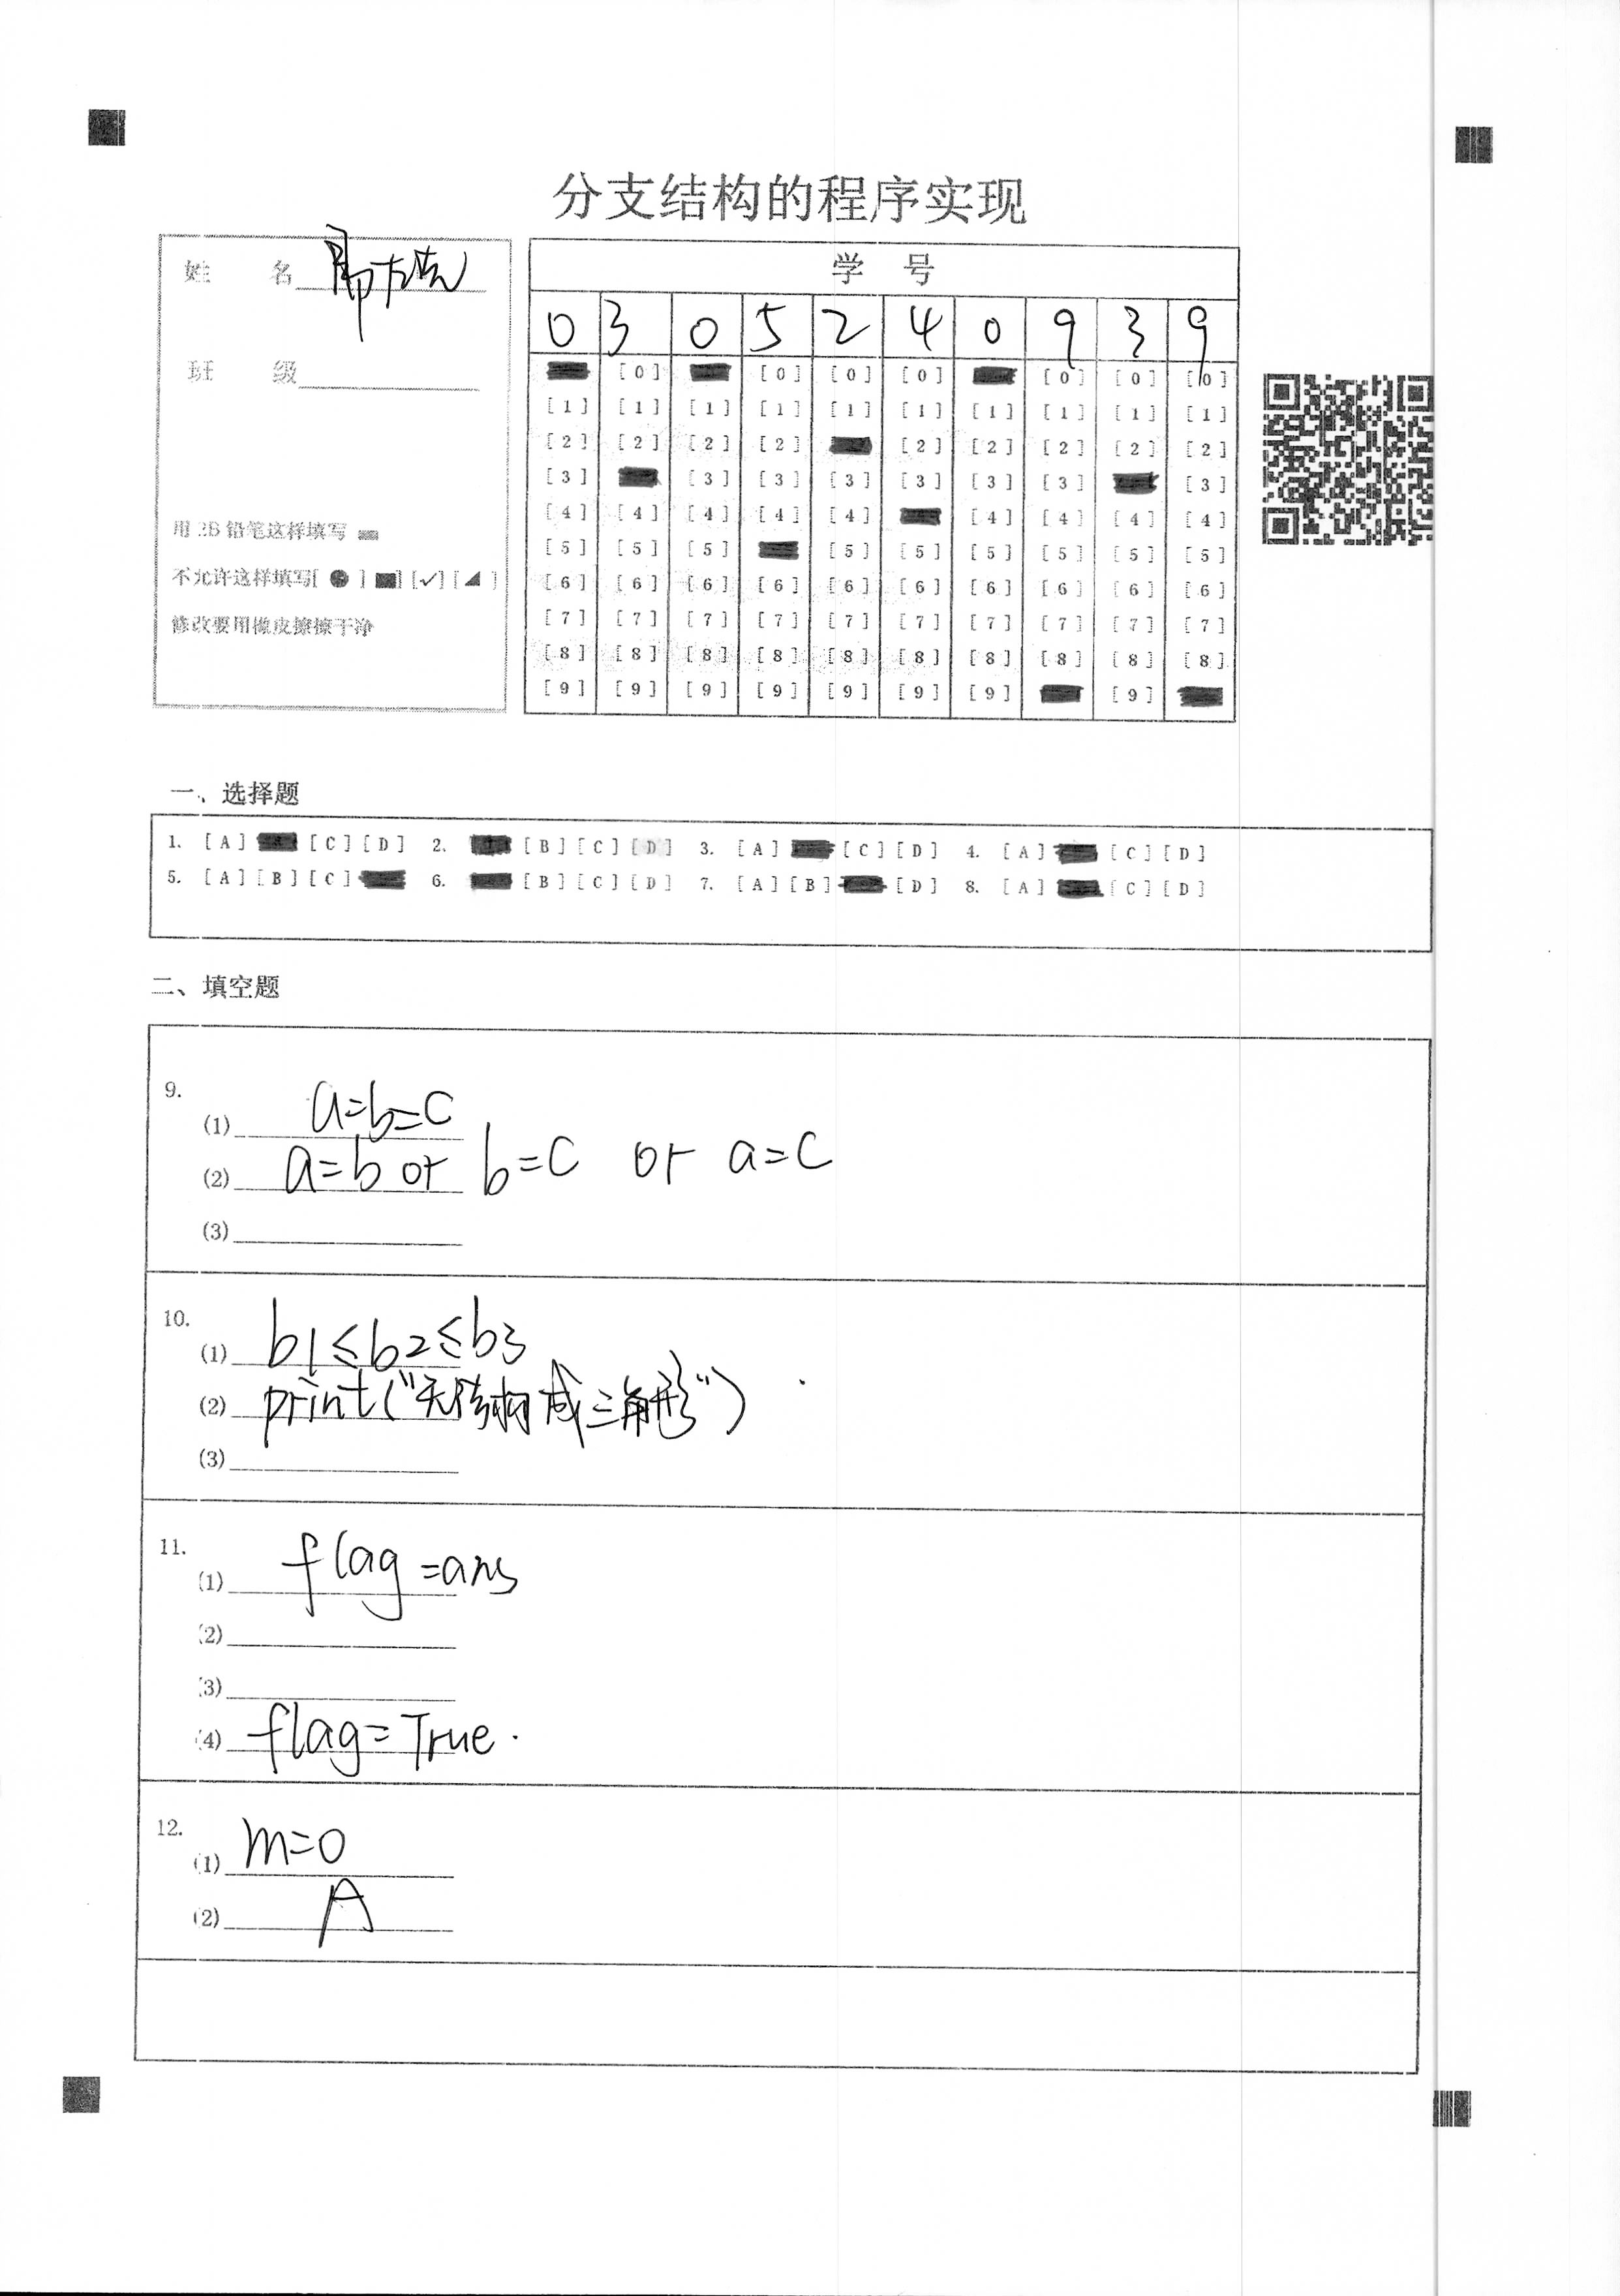 分支结构的程序实现
姓 名
班 级
用 2B 铅笔这样填写
不允许这样填写[ ● ] [✓] [ ]
修改要用橡皮擦擦干净
学 号
0 3 0 5 2 4 0 9 3 9
[0] [0] [0] [0] [0] [0] [0]
[1] [1] [1] [1] [1] [1] [1] [1] [1] [1]
[2] [2] [2] [2] [2] [2] [2] [2] [2]
[3] [3] [3] [3] [3] [3] [3] [3]
[4] [4] [4] [4] [4] [4] [4] [4] [4]
[5] [5] [5] [5] [5] [5] [5] [5] [5]
[6] [6] [6] [6] [6] [6] [6] [6] [6] [6]
[7] [7] [7] [7] [7] [7] [7] [7] [7] [7]
[8] [8] [8] [8] [8] [8] [8] [8] [8] [8]
[9] [9] [9] [9] [9] [9] [9] [9]
一、选择题
1. [A] [C] [D] 2. [B] [C] [D] 3. [A] [C] [D] 4. [A] [C] [D]
5. [A] [B] [C] 6. [B] [C] [D] 7. [A] [B] [D] 8. [A] [C] [D]
二、填空题
9.
(1) a=b=c
(2) a=b or b=c or a=c
(3)
10.
(1) b1≤b2≤b3
(2) print("无法构成三角形")
(3)
11.
(1) flag=ans
(2)
(3)
(4) flag=True.
12.
(1) m=0
(2) A